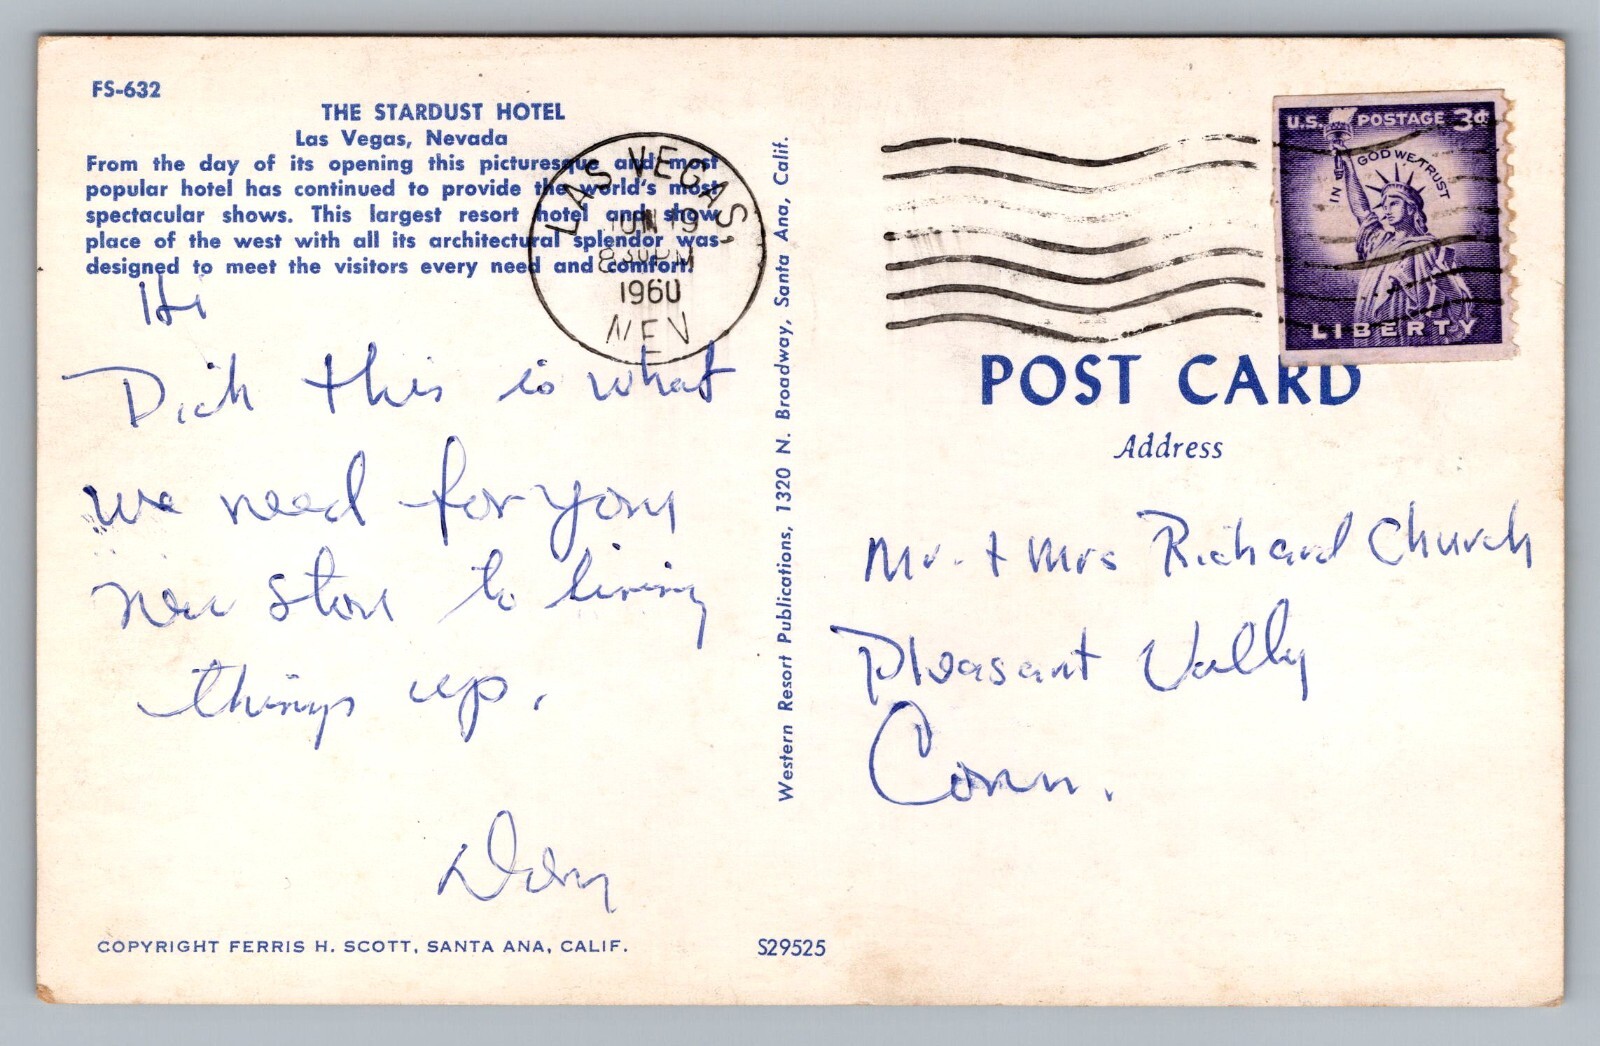 FS-632
THE STARDUST HOTEL
Las Vegas, Nevada
From the day of its opening this picturesque and most
popular hotel has continued to provide the world's most
spectacular shows. This largest resort hotel and show
place of the west with all its architectural splendor was
designed to meet the visitors every need and comfort!
LAS VEGAS,
JUN 19
8 30 PM
1960
NEV
Hi
Dick this is what
we need for your
new store to lining
things up.
Don
COPYRIGHT FERRIS H. SCOTT, SANTA ANA, CALIF.
S29525
Western Resort Publications, 1320 N. Broadway, Santa Ana, Calif.
U.S. POSTAGE 3¢
IN GOD WE TRUST
LIBERTY
POST CARD
Address
Mr. + Mrs Richard Church
Pleasant Vally
Conn.